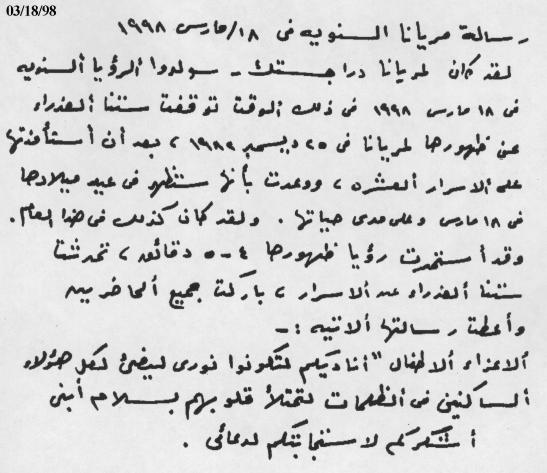 03/18/98
رسالة مريانا السنويه فى ١٨/مارس ١٩٩٨
لقد كان لمريانا دراجستك - سولدوا الرؤيا السنويه
فى ١٨ مارس ١٩٩٨ فى ذلك الوقت توقفت ستنا العذراء
عن ظهورها لمريانا فى ٢٥ ديسمبر ١٩٨٢ ، بعد أن أستأمنتها
على الاسرار العشره ، ووعدت بأنها ستظهر فى عيد ميلادها
فى ١٨ مارس وعلى مدى حياتها . ولقد كان كذلك فى هذا العام .
وقد أستمرت رؤيا ظهورها ٤-٥ دقائق ، تحدثت
ستنا العذراء عن الاسرار ، باركت جميع الحاضرين
وأعطت رسالتها الاتيه :-
ألاعزاء ألاطفال "أناديكم لتكونوا نورى ليضئ لكل هؤلاء
الساكنين فى الظلمات لتمتلأ قلوبهم بسلام أبنى
أشكركم لاستجابتكم لدعائى .